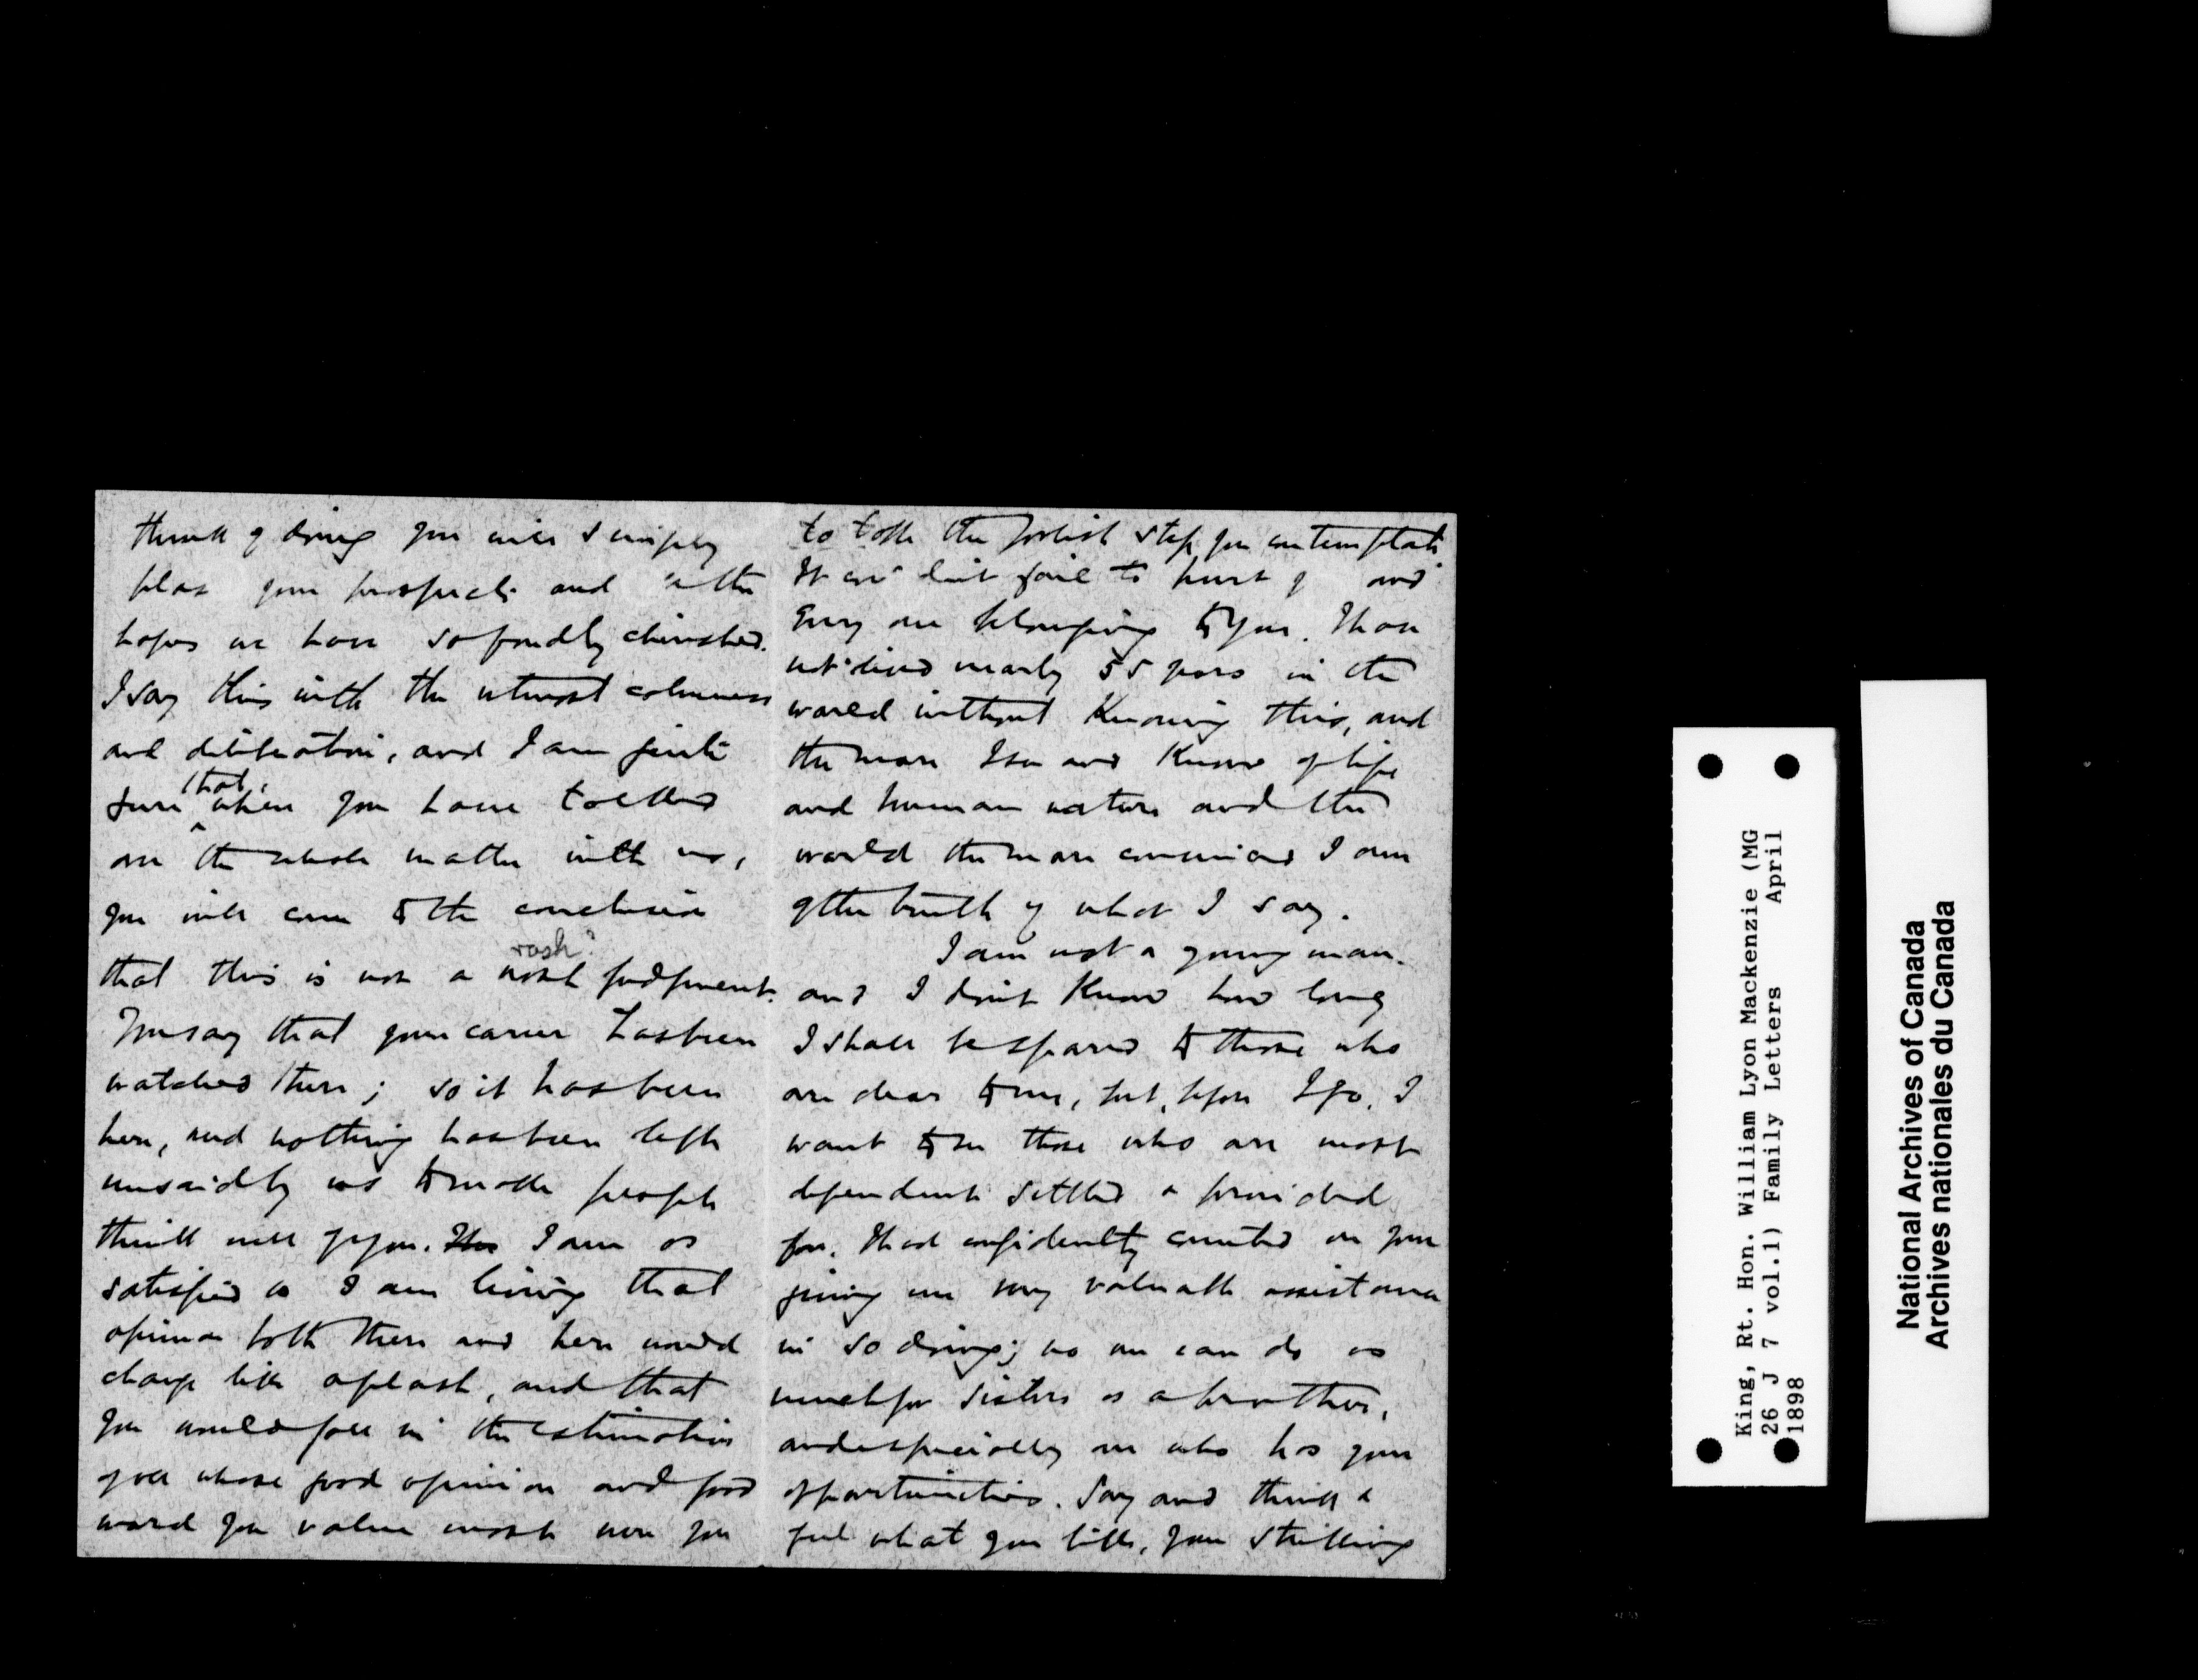 think of doing you will simply
blast your prospects and all the
hopes we have so fondly cherished.
I say this with the utmost calmness
and deliberation, and I am quite
sure that when you have talked
over the whole matter with us,
you will come to the conclusion
that this is not a rash judgment.
rash?
You say that your career has been
watched there; so it has been
here, and nothing has been left
unsaid by us to make people
think well of you. I am as
satisfied as I am living that
opinion both there and here would
change like a flash, and that
you would fall in the estimation
of all whose good opinion and good
word you value most were you
to take the foolish step you contemplate
It can't but fail to hurt you and
every one belonging to you. I have
not lived nearly 55 years in the
world without knowing this, and
the more I see and know of life
and human nature and the
world the more convinced I am
of the truth of what I say.
I am not a young man.
and I don't know how long
I shall be spared to those who
are dear to me, but, before I go, I
want to see those who are most
dependent settled & provided
for. I had confidently counted on your
giving me very valuable assistance
in so doing; no one can do as
much for sisters as a brother,
and especially one who has your
opportunities. Say and think &
feel what you like, your striking
King, Rt. Hon. William Lyon Mackenzie (MG
26 J 7 vol.1) Family Letters April
1898
National Archives of Canada
Archives nationales du Canada